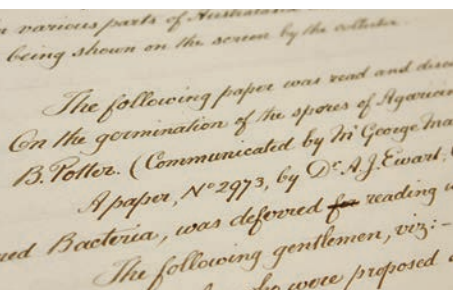 various parts of Australia
being shown on the screen by the
The following paper was read and
On the germination of the spores of
B. Potter. (Communicated by Mr George
A paper, No 2973, by Dr A. J. Ewart,
Bacteria, was deferred for reading
The following gentlemen, viz:-
were proposed